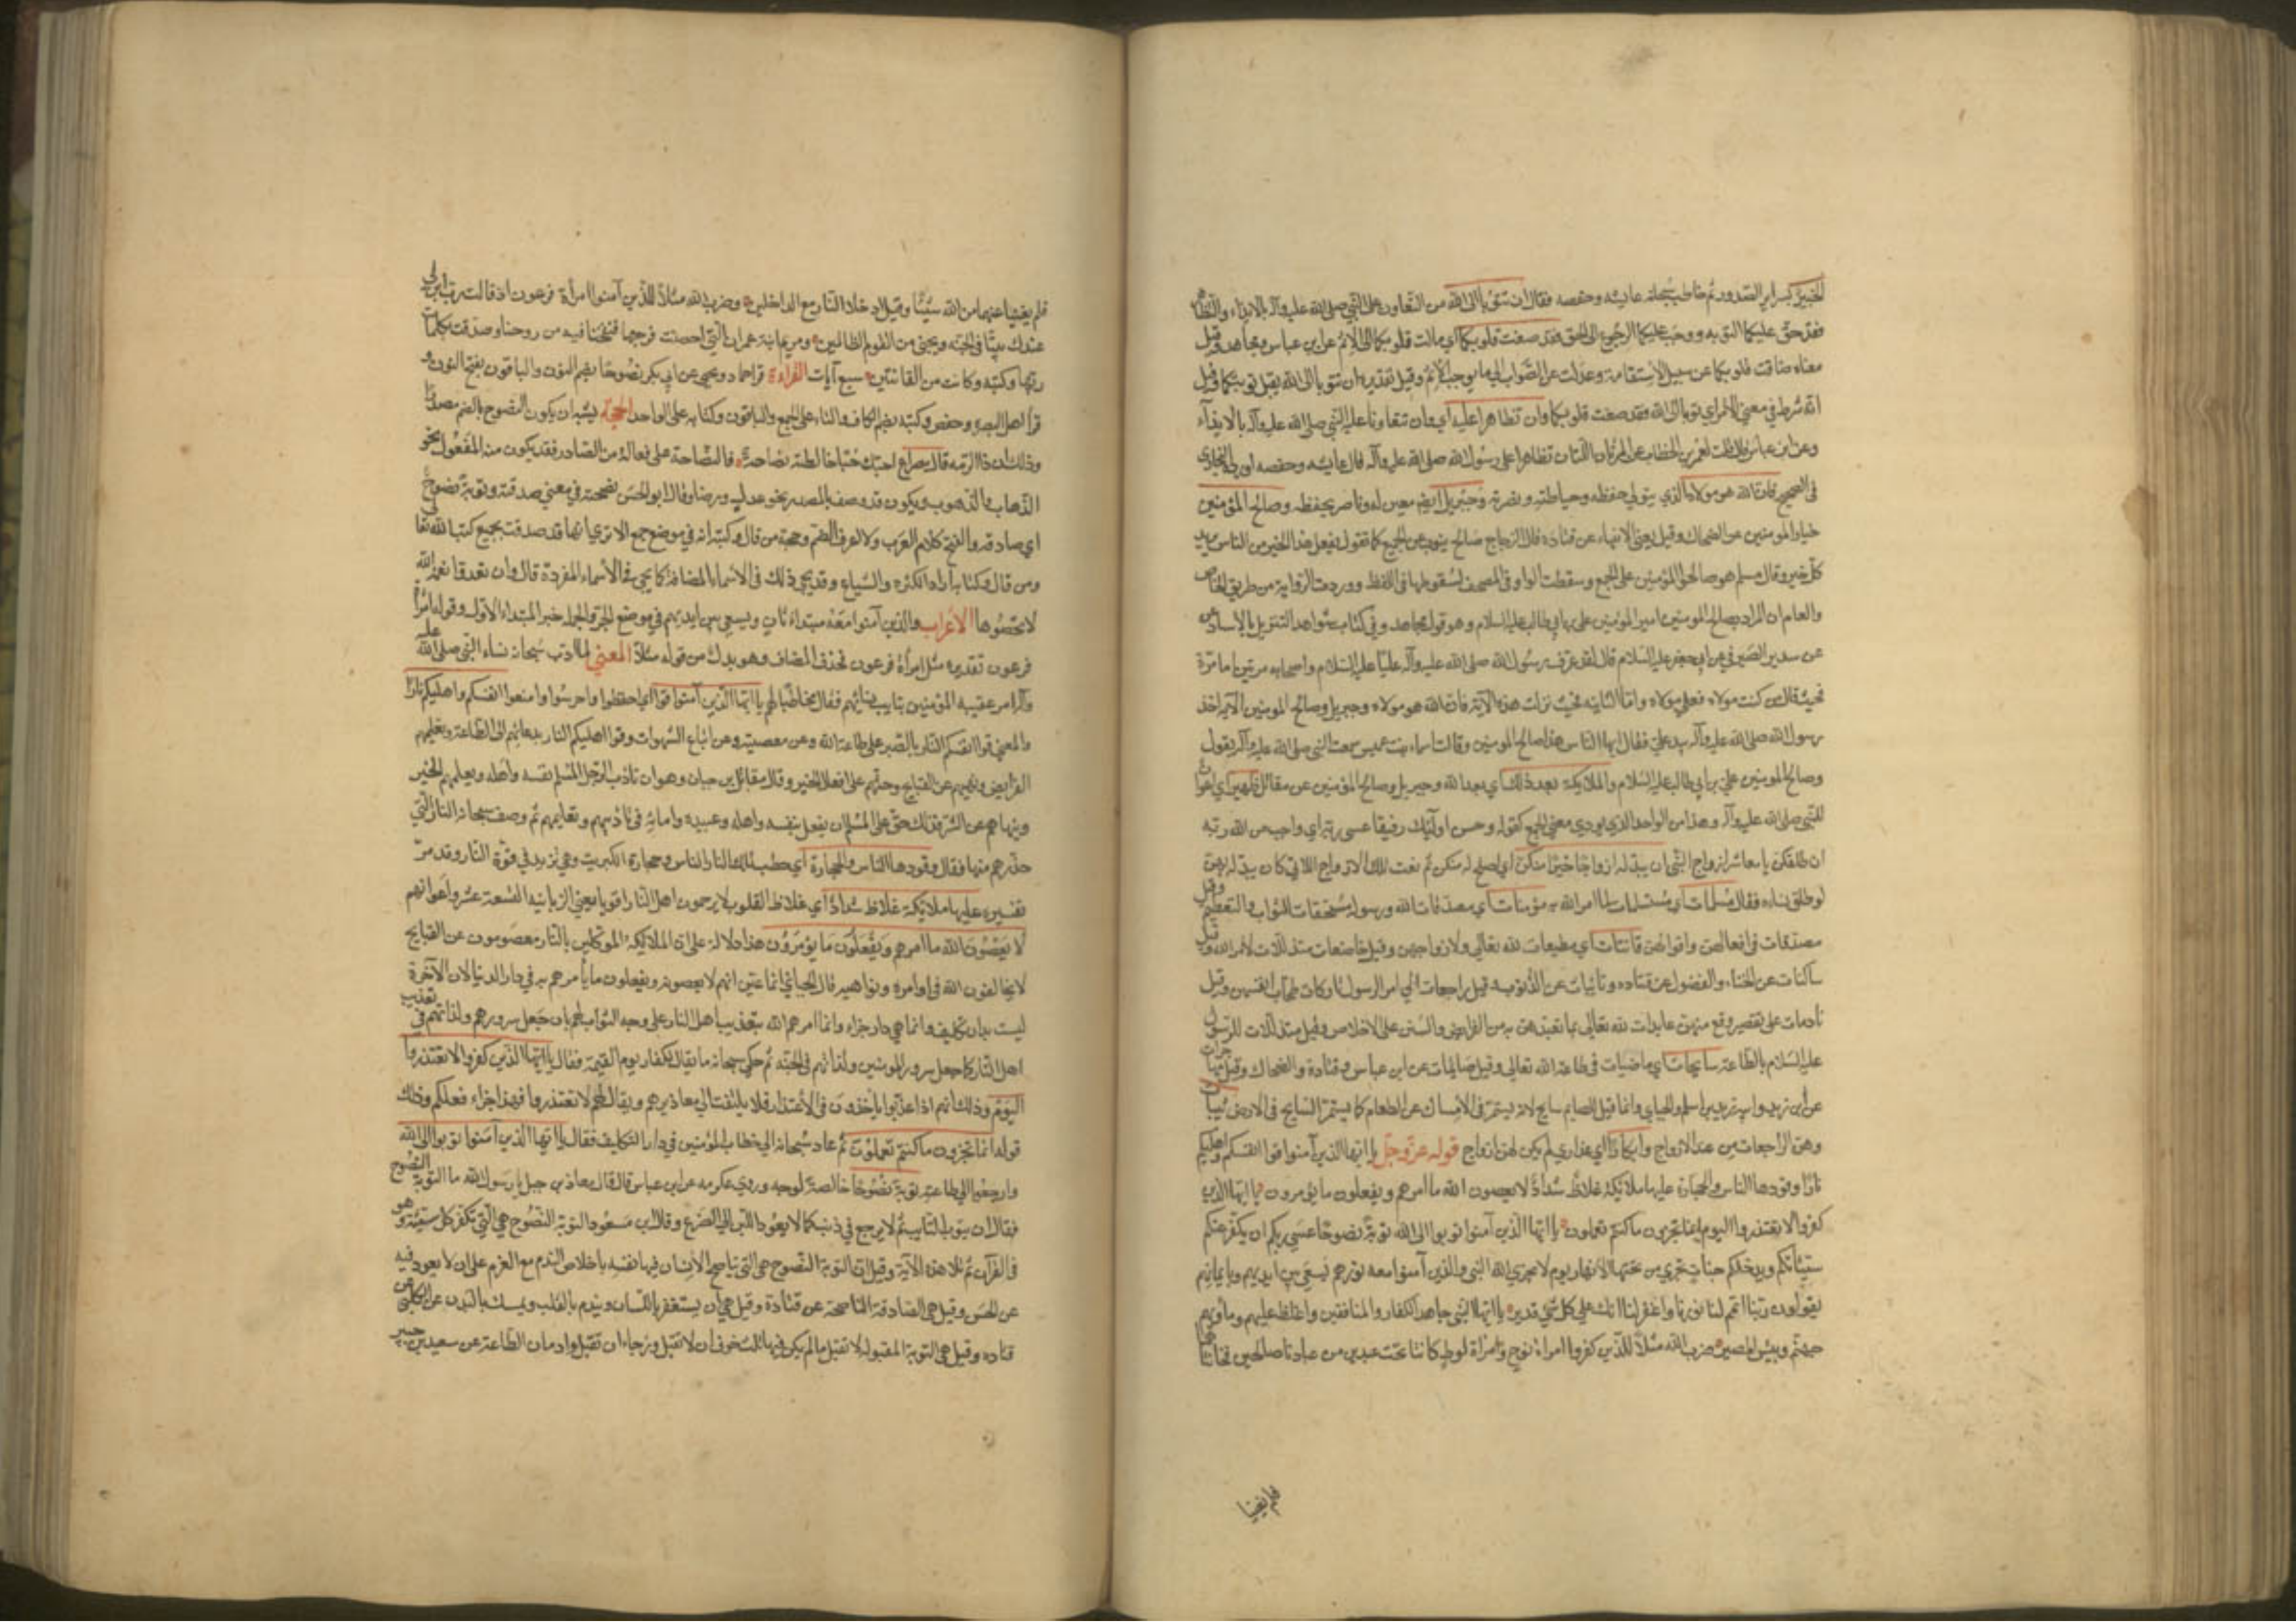 الخبير بسراير الصدور ثم خاطب سبحانه عايشه وحفصه فقال ان تتوبا الى الله من التعاون على النبي صلى الله عليه وآله بالايذاء والتظاهر
فقد حق عليكما التوبه ووجب عليكما الرجوع الى الحق فقد صغت قلوبكما اي مالت قلوبكما الى الاثم عن ابن عباس ومجاهد وقيل
معناه ضاقت قلوبكما عن سبيل الاستقامة وعدلت عن الصواب الى ما يوجب الاثم وقيل تقديره ان تتوبا الى الله يقبل توبتكما وقيل
انه شرط في معنى الامر اي توبا الى الله فقد صغت قلوبكما وان تظاهرا عليه اي وان تتعاونا على النبي صلى الله عليه وآله بالايذاء
وعن ابن عباس قال قلت لعمر بن الخطاب من المرأتان اللتان تظاهرا على رسول الله صلى الله عليه وآله قال عايشه وحفصه اورده البخاري
في الصحيح فان الله هو مولاه الذي يتولى حفظه وحياطته ونصرته وجبريل ايضا معين له وناصر يحفظه وصالح المؤمنين
خيار المومنين عن الضحاك وقيل يعني الانبياء عن قتادة قال الزجاج صالح ينوب عن الجمع كما تقول يفعل هذا الخير من الناس تريد
كل خير وقال مسلم هو صالحوا المؤمنين على الجمع وسقطت الواو في المصحف لسقوطها في اللفظ ووردت الرواية من طريق الخاص
والعام ان المراد بصالح المومنين امير المؤمنين على بن ابي طالب عليه السلام وهو قول مجاهد وفي كتاب شواهد التنزيل بالاسناد
عن سدير الصيرفي عن ابي جعفر عليه السلام قال لقد عرف رسول الله صلى الله عليه وآله عليا عليه السلام واصحابه مرتين اما مرة
فحيث قال من كنت مولاه فعلي مولاه واما الثانيه فحيث نزلت هذه الآية فان الله هو مولاه وجبريل وصالح المومنين الآية اخذ
رسول الله صلى الله عليه وآله بيد علي فقال ايها الناس هذا صالح المومنين وقالت اسماء بنت عميس سمعت النبي صلى الله عليه وآله يقول
وصالح المومنين علي بن ابي طالب عليه السلام والملايكة بعد ذلك اي بعد الله وجبريل وصالح المؤمنين عن مقاتل ظهير اي اعوان
للنبي صلى الله عليه وآله وهذا من الواحد الذي يودي معنى الجمع كقوله وحسن اولئك رفيقا عسى ربه اي واجب من الله ربه
ان طلقكن يا معاشر ازواج النبي ان يبدله ازواجا خيرا منكن اي اصلح له منكن ثم نعت تلك الازواج اللاتي كان يبدله بهن
لو طلق نساءه فقال مسلمات اي مستسلمات لما امر الله به مؤمنات اي مصدقات الله ورسوله مستحقات للثواب والتعظيم وقيل
مصدقات في افعالهن واقوالهن قانتات اي مطيعات لله تعالى ولازواجهن وقيل خاضعات متذللات لامر الله وقيل
ساكنات عن الخناء والفضول عن قتاده وتائبات عن الذنوب وقيل راجعات الى امر الرسول تاركات لمحاب انفسهن وقيل
نادمات على تقصير وقع منهن عابدات لله تعالى بما تعبدهن به من الفرايض والسنن على الاخلاص وقيل متذللات للرسول
عليه السلام بالطاعة سايحات اي ماضيات في طاعة الله تعالى وقيل صايمات عن ابن عباس وقتادة والضحاك وقيل مهاجرات
عن ابن زيد وابيه زيد بن اسلم والجبايي وانما قيل للصايم سايح لانه يستمر في الامساك عن الطعام كما يستمر السايح في الارض ثيبات
وهن الراجعات من عند الازواج وابكارا اي عذاري لم يكن لهن ازواج قوله عز وجل يا ايها الذين آمنوا قوا انفسكم واهليكم
نارا وقودها الناس والحجارة عليها ملائكة غلاظ شداد لا يعصون الله ما امرهم ويفعلون ما يؤمرون يا ايها الذين
كفروا لا تعتذروا اليوم انما تجزون ما كنتم تعملون يا ايها الذين آمنوا توبوا الى الله توبة نصوحا عسى ربكم ان يكفر عنكم
سيئاتكم ويدخلكم جنات تجري من تحتها الانهار يوم لا يخزي الله النبي والذين آمنوا معه نورهم يسعى بين ايديهم وبايمانهم
يقولون ربنا اتمم لنا نورنا واغفر لنا انك على كل شي قدير يا ايها النبي جاهد الكفار والمنافقين واغلظ عليهم وماويهم
جهنم وبئس المصير ضرب الله مثلا للذين كفروا امراة نوح وامراة لوط كانتا تحت عبدين من عبادنا صالحين فخانتاهما
فلم يغنيا
فلم يغنيا عنهما من الله شيئا وقيل ادخلا النار مع الداخلين وضرب الله مثلا للذين آمنوا امرأة فرعون اذ قالت رب ابن لي
عندك بيتا في الجنة ونجني من القوم الظالمين ومريم ابنة عمران التي احصنت فرجها فنفخنا فيه من روحنا وصدقت بكلمات
ربها وكتبه وكانت من القانتين سبع آيات القراءة قرا حماد ويحيى عن ابي بكر نصوحا بضم النون والباقون بفتح النون و
قرأ اهل البصرة وحفص وكتبه بضم الكاف والتاء على الجمع والباقون وكتابه على الواحد الحجة يشبه ان يكون النصوح بالضم مصدرا
وذلك ان ذا الرمة قال يصراع احبك حبا خالطته نصاحة فالنصاحة على فعالة من المصادر فقد يكون منه المفعول نحو
الذهاب والذهوب ويكون قد وصف بالمصدر نحو عدل ورضا وقال ابو الحسن نصحته في معنى صدقته وتوبة نصوح
اي صادقه والفتح كلام العرب ولا اعرف الضم وحجة من قال وكتبه انه في موضع جمع الا ترى انها قد صدقت بجميع كتب الله تعالى
ومن قال وكتابه اراد الكثرة والشياع وقد يجي ذلك في الاسماء المضافة كما يجي في الأسماء المفردة قال وان تعدوا نعمة الله
لا تحصوها الاعراب والذين آمنوا معه مبتداء ثان ويسعى بين ايديهم في موضع الجر والجملة خبر المبتداء الاول وقوله امرأة
فرعون تقديره مثل امرأة فرعون فحذف المضاف وهو بدل من قوله مثلا المعنى لما ادب سبحانه نساء النبي صلى الله عليه
وآله امر عقيبه المؤمنين بتاديب نسائهم فقال مخاطبا لهم يا ايها الذين آمنوا قوا اي احفظوا واحرسوا وامنعوا انفسكم واهليكم نارا
والمعنى قوا انفسكم النار بالصبر على طاعة الله وعن معصيته وعن اتباع الشهوات وقوا اهليكم النار بدعائهم الى الطاعة وتعليمهم
الفرايض ونهيهم عن القبايح وحثهم على افعال الخير وقال مقاتل بن حيان وهو ان يؤدب الرجل المسلم نفسه واهله ويعلمهم الخير
وينهاهم عن الشر فذلك حق على المسلم ان يفعل بنفسه واهله وعبيده وامائه في تاديبهم وتعليمهم ثم وصف سبحانه النار التي
حذرهم منها فقال وقودها الناس والحجارة اي حطب تلك النار الناس وحجارة الكبريت وهي تزيد في قوة النار وقد مر
تفسيره عليها ملايكة غلاظ شداد اي غلاظ القلوب لا يرحمون اهل النار اقويا يعني الزبانية التسعة عشر واعوانهم
لا يعصون الله ما امرهم ويفعلون ما يؤمرون هذا دلالة على ان الملايكة الموكلين بالنار معصومون عن القبايح
لا يخالفون الله في اوامره ونواهيه قال الجبائي انما عنى انهم لا يعصونه ويفعلون ما يأمرهم به في دار الدنيا لان الآخرة
ليست بدار تكليف وانما هي دار جزاء وانما امرهم الله بتعذيب اهل النار على وجه الثواب لهم بان جعل سرورهم ولذاتهم في تعذيب
اهل النار كما جعل سرور المومنين ولذاتهم في الجنة ثم حكى سبحانه ما يقال للكفار يوم القيمة فقال يا ايها الذين كفروا لا تعتذروا
اليوم وذلك انهم اذا عذبوا ياخذون في الاعتذار فلا يلتفت الى معاذيرهم ويقال لهم لا تعتذروا فهذا جزاء فعلكم وذلك
قوله انما تجزون ما كنتم تعملون ثم عاد سبحانه الى خطاب المؤمنين في دار التكليف فقال يا ايها الذين آمنوا توبوا الى الله
وارجعوا الى طاعته توبة نصوحا خالصة لوجهه وروى عكرمه عن ابن عباس قال قال معاذ بن جبل يا رسول الله ما التوبة النصوح
فقال ان يتوب التائب ثم لا يرجع في ذنب كما لا يعود اللبن الى الضرع وقال ابن مسعود التوبة النصوح هي التي تكفر كل سيئة وهو
في القرآن ثم تلا هذه الآية وقيل ان التوبة النصوح هي التي يناصح الانسان فيها نفسه باخلاص الندم مع العزم على ان لا يعود فيه
عن الحسن وقيل هي الصادقة الناصحة عن قتادة وقيل هي ان يستغفر باللسان ويندم بالقلب ويمسك بالبدن عن الكلبي
قتاده وقيل هي التوبة المقبولة لا تقبل ما لم يكن فيها ثلث خوف ان لا تقبل ورجاء ان تقبل وادمان الطاعة عن سعيد بن جبير